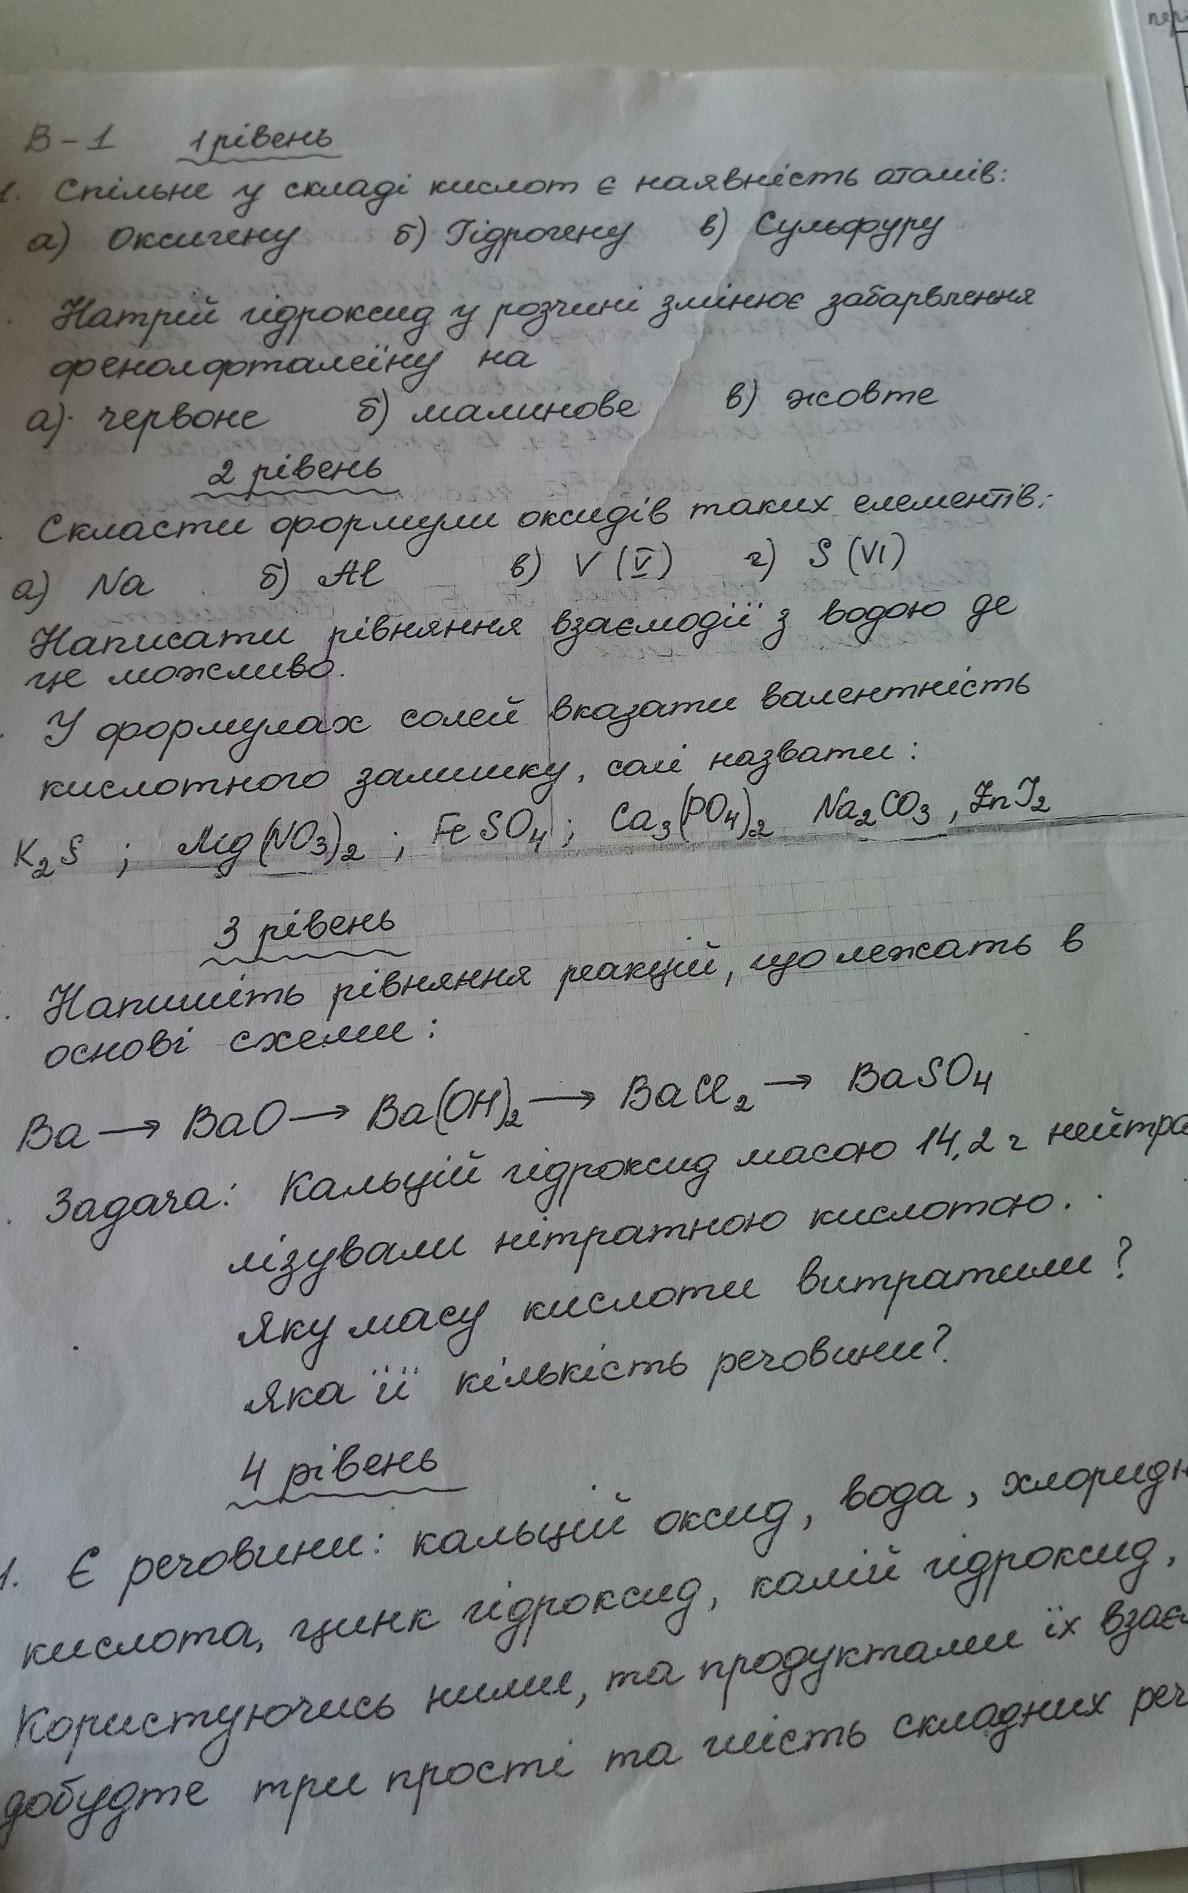 В-1 1 рівень
1. Спільне у складі кислот є наявність атомів:
а) Оксигену б) Гідрогену в) Сульфуру
. Натрій гідроксид у розчині змінює забарвлення
фенолфталеїну на
а) червоне б) малинове в) жовте
2 рівень
. Скласти формули оксидів таких елементів:
а) Na б) Al в) V (V) г) S (VI)
Написати рівняння взаємодії з водою де
це можливо.
. У формулах солей вказати валентність
кислотного залишку, солі назвати:
K₂S ; Mg(NO₃)₂ ; FeSO₄ ; Ca₃(PO₄)₂ Na₂CO₃ , ZnI₂
3 рівень
. Напишіть рівняння реакцій, що лежать в
основі схеми:
Ba → BaO → Ba(OH)₂ → BaCl₂ → BaSO₄
. Задача: Кальцій гідроксид масою 14,2 г нейтра
лізували нітратною кислотою.
Яку масу кислоти витратили?
Яка її кількість речовини?
4 рівень
1. Є речовини: кальцій оксид, вода, хлоридн
кислота, цинк гідроксид, калій гідроксид,
Користуючись ними, та продуктами їх взаєм
добудьте три прості та шість складних реч